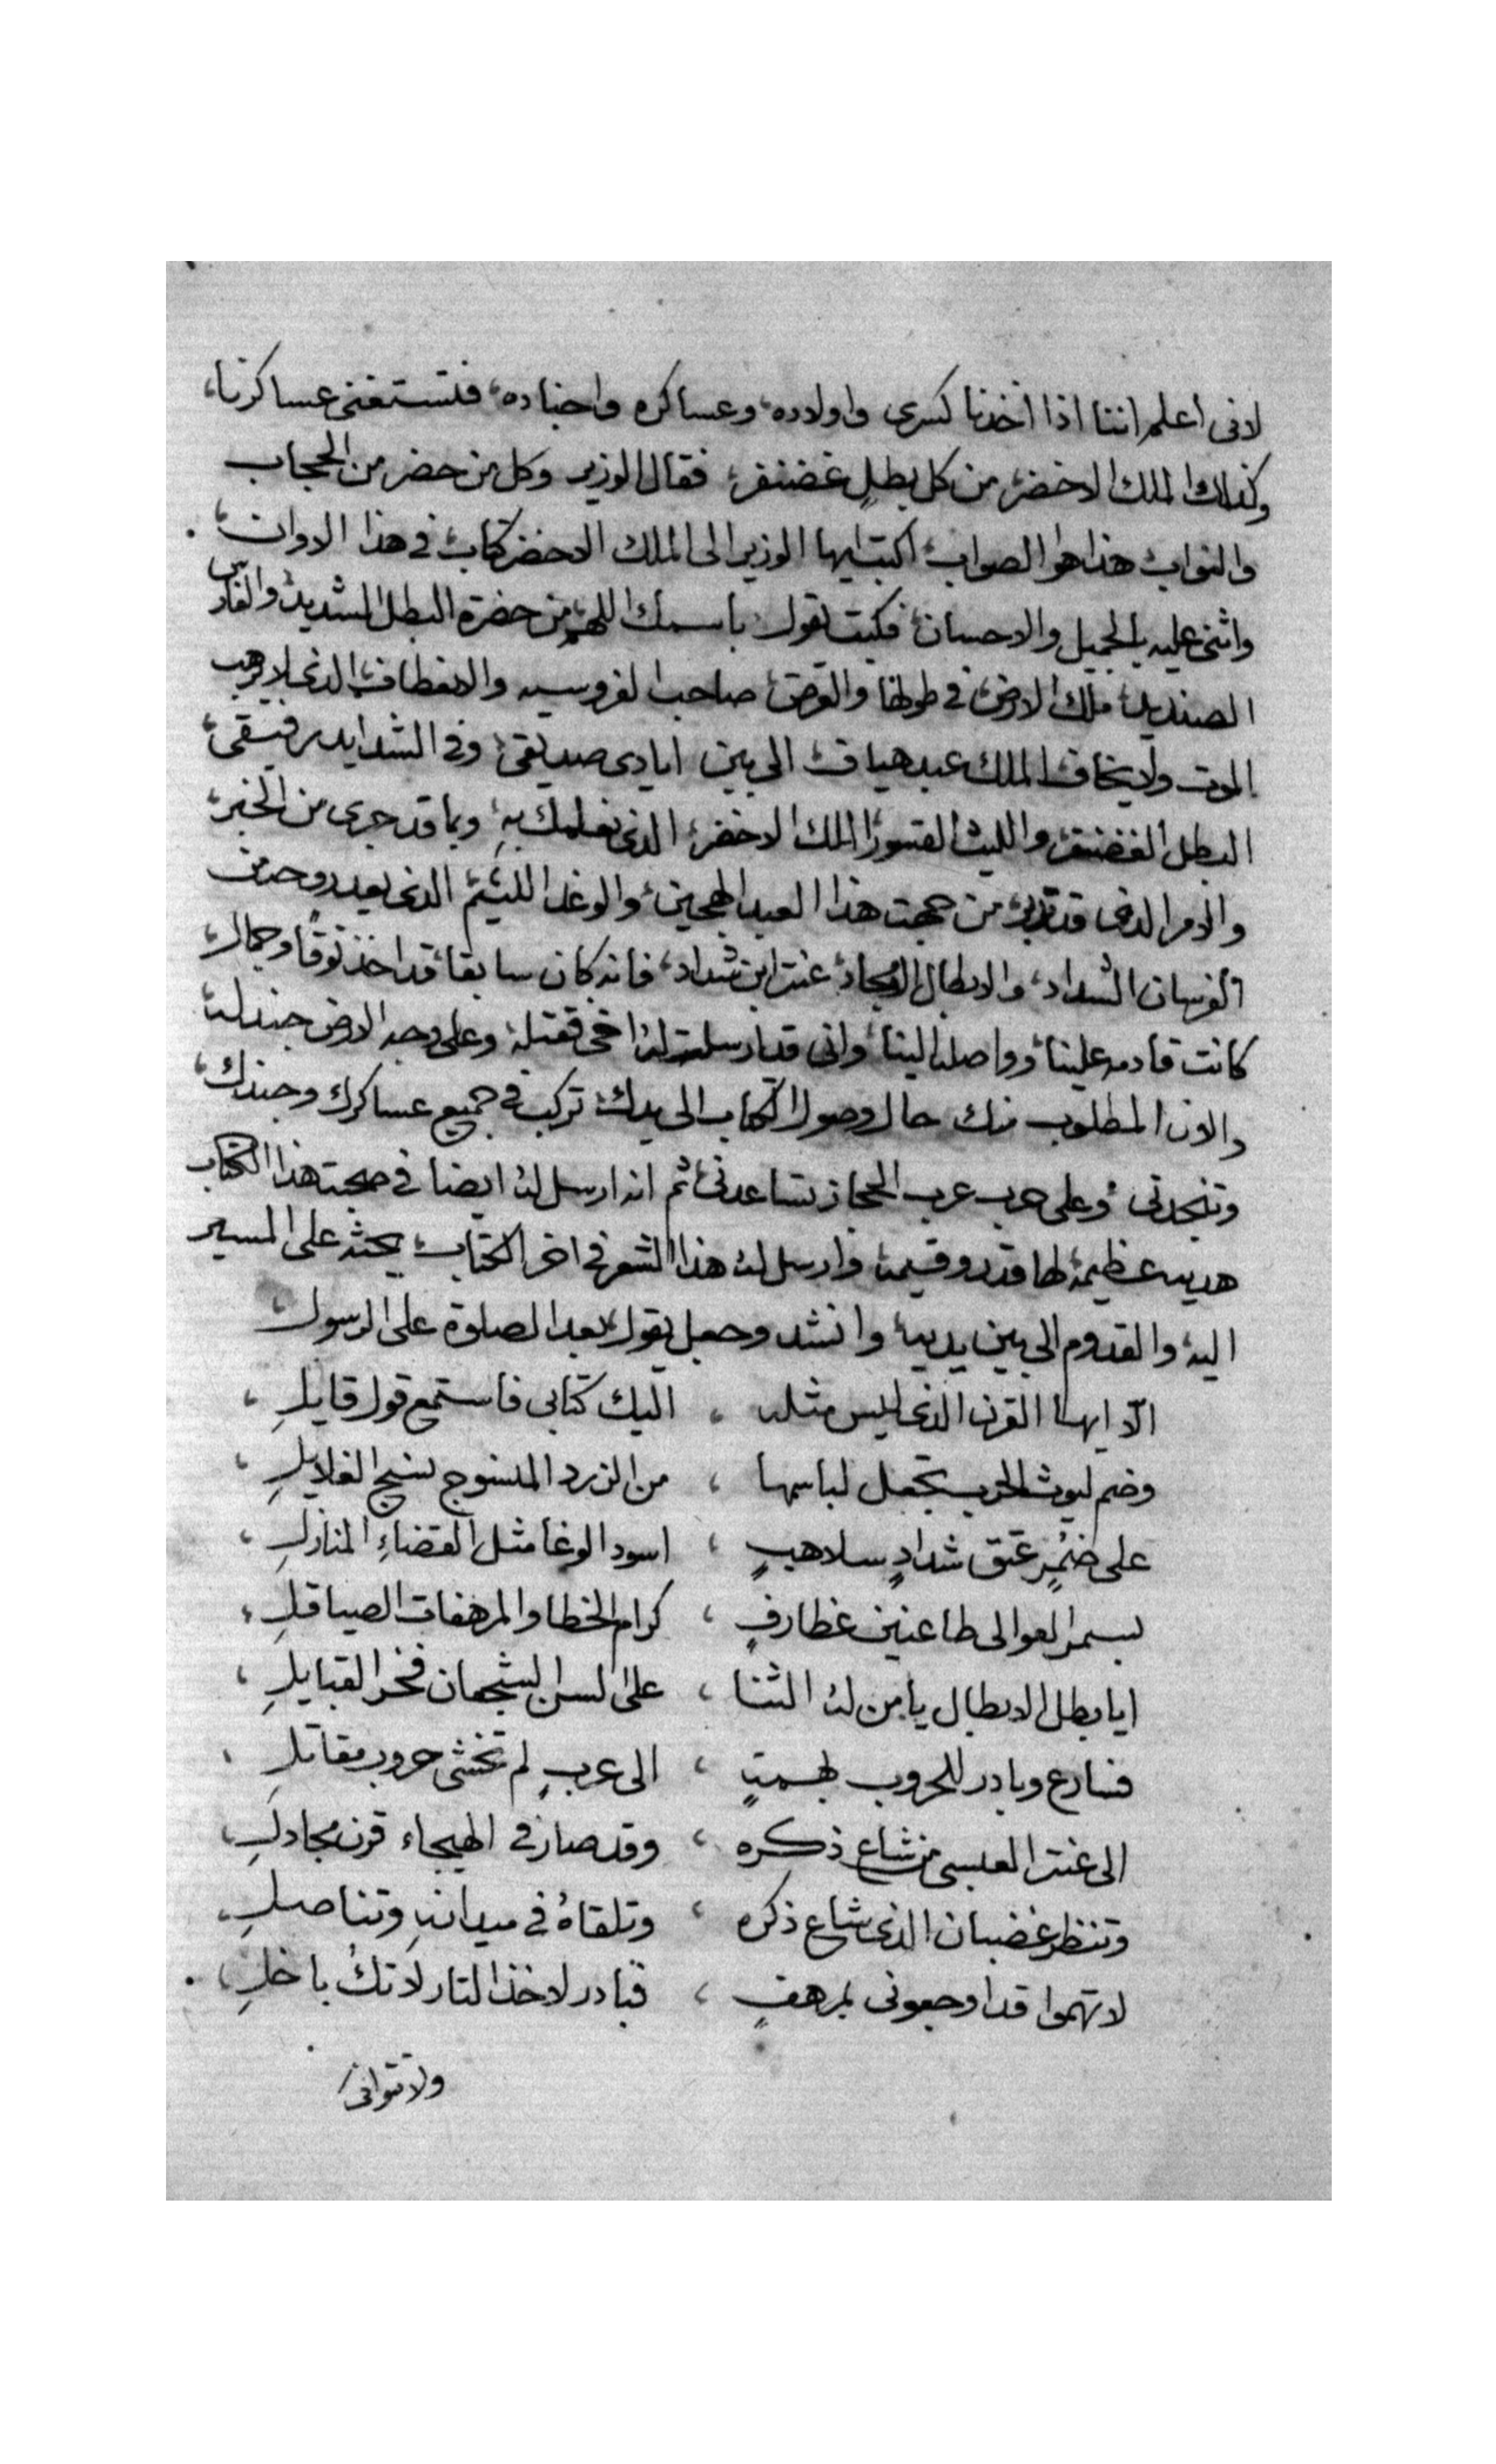 لانى اعلم اننا اذا اخدنا كسرى واولاده، وعساكره واجناده، فتستغنى عساكرنا،
وكذلك الملك الاخضر، من كل بطلٍ غضنفر، فقال الوزير وكل من حضر من الحجاب
والنواب، هذا هو الصواب، اكتب ايها الوزير الى الملك الاخضر كتاب، فى هذا الاوان،
واثنى عليه بالجميل والاحسان، فكتب يقول باسمك اللهم من حضرة البطل الشديد، والفارس
الصنديد، ملك الارض، فى طولها والعرض، صاحب الفروسيه والانعطاف، الذى لا يرهب
الموت ولا يخاف، الملك عبد هياف، الى بين ايادى صديقى، وفى الشدايد رفيقى،
البطل الغضنفر، والليث القسور، الملك الاخضر، الذى نعلمك بهِ، وبما قد جرى من الخبر،
والامر الذى قد تدبر، من جهت هذا العبد الهجين، والوغد اللئيم، الذى يعد روحه من
الفرسان الشداد، والابطال الامجاد، عنتر ابن شداد، فانه كان سابقا، قد اخذ نوقًا وجمال،
كانت قادمه علينا، وواصله الينا، وانى قد ارسلت له اخى فقتله، وعلى وجه الارض جندله،
والان المطلوب منك حال وصول الكتاب الى يدك، تركب فى جميع عساكرك وجندك،
وتنجدنى، وعلى حرب عرب الحجاز تساعدنى، ثم انه ارسل له ايضا فى صحبت هذا الكتاب
هديه عظيمه، لها قدر وقيمه، وارسل له هذا الشعر فى اخر الكتاب، يحثه على المسير
اليه، والقدوم الى بين يديه، وانشد وجعل يقول، بعد الصلوة على الرسول،
الا ايها القرن الذى ليس مثله ، اليك كتابى فاستمع قول قايلِ ،
وضم ليوث الحرب تجعل لباسها ، من الزرد المنسوج نسج الغلايلِ ،
على ضمُرٍ عتق شدادٍ سلاهبٍ ، اسود الوغا مثل القضاءِ المنازلِ ،
بسمر العوالى طاعنين غطارفٍ ، كرام الخطا والمرهفات الصياقلِ ،
ايا بطل الابطال يا من له الثنا ، على الشجعان فخر القبايلِ ،
فسارع وبادر للحروب بهمتٍ ، الى عربٍ لم تخشى حروب مقاتلِ ،
الى عنتر العبسى من شاع ذكره ، وقد صار فى الهيجاء قرن مجادلِ ،
وتنظر غضبان الذى شاع ذكره ، وتلقاهُ فى ميدانهِ وتناصلِ ،
لانهموا قد اوجعونى بمرهفٍ ، فبادر لاخذ التار لا تكُ باخلِ ،
ولا تتوانى